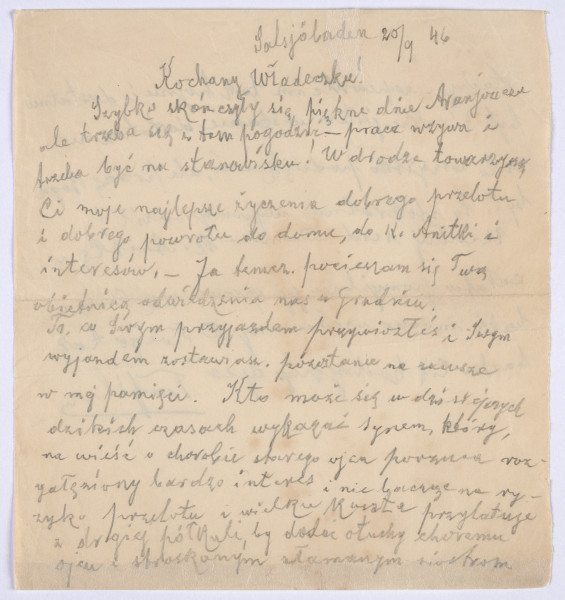 Salsjöbaden 20/9 46
Kochany Władeczku!
Szybko skończyły się piękne dnie Aranjuezu
ale trzeba się z tem pogodzić – praca wzywa i
trzeba być na stanowisku! W drodze towarzyszą
Ci moje najlepsze życzenia dobrego przelotu
i dobrego powrotu do domu, do K. Anitki i
interesów. – Ja tymcz. pocieszam się Twą
obietnicą odwiedzenia nas w Grudniu.
To, co Swym przyjazdem przywiozłeś i Swym
wyjazdem zostawiasz. pozostanie na zawsze
w mej pamięci. Kto może się w dzisiejszych
dzikich czasach wykazać synem, który,
na wieść o chorobie starego ojca porzuca roz-
gałęziony bardzo interes i nie bacząc na ry-
zyko przelotu i wielkie koszta przylatuje
z drugiej półkuli, by dodać otuchy choremu
ojcu i stroskanym złamanym siostrom